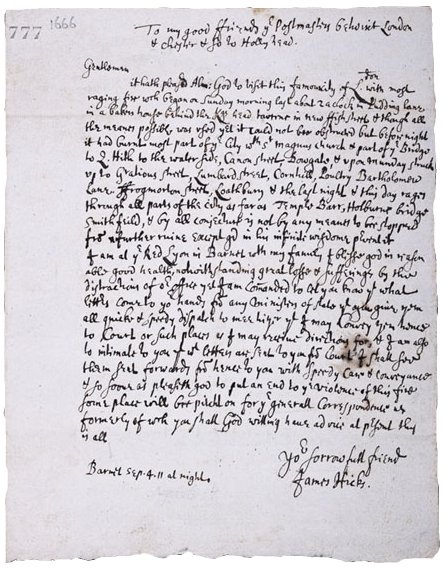 777 1666
To my good ffriends ye Postmasters betwixt London
& Chester & so to Holly head
Gentlemen
it hath pleased Almi: God to visit this famous city of London with most
raging fire wch began on Sunday morning last about 2 a clock in Pudding lane
in a bakers house behind the Kgs head taverne in new ffish street & though all
the meanes possible was used yet it could not bee obstructed but before night
it had burnt most part of ye City wth St magnus church & part of ye Bridge
to Q Hith to the water side, Canon street Dowgate & upon munday struck
up to Gratious street, Lumbard street, Cornhill, Poultry Bartholomew
Lane, ffrogmorton street, Loathbury & the last night & this day rages
through all parts of the city as far as Temple Barr, Holborne bridge
Smithfeild, & by all conjecture is not by any meanes to be stopped
from further ruine except god in his infinite wisdome prevent it
I am at ye Red Lyon in Barnet wth my family, & blesse god in reason
able good health, notwithstanding great losse & sufferings by the
distractions of or office yet I am Comanded to let you know yt what
letters come to yor hands for any Ministers of state yt you give ym
all quick & speedy dispatch to mee hither yt I may convey ym hence
to Court or such places as I may receive directions for & I am also
to intimate to you yt wt letters are sent to you from Court I shall see
them sent forwards from hence to you with speedy care & conveyance
& so soone as pleaseth god to put an end to ye violence of this fire
some place will bee pitcht on for ye generall Correspondence as
formerly of wch you shall God willing have advice at present this
is all
Yor sorrowfull friend
James Hicks.
Barnet Sep. 4. 11 at night.